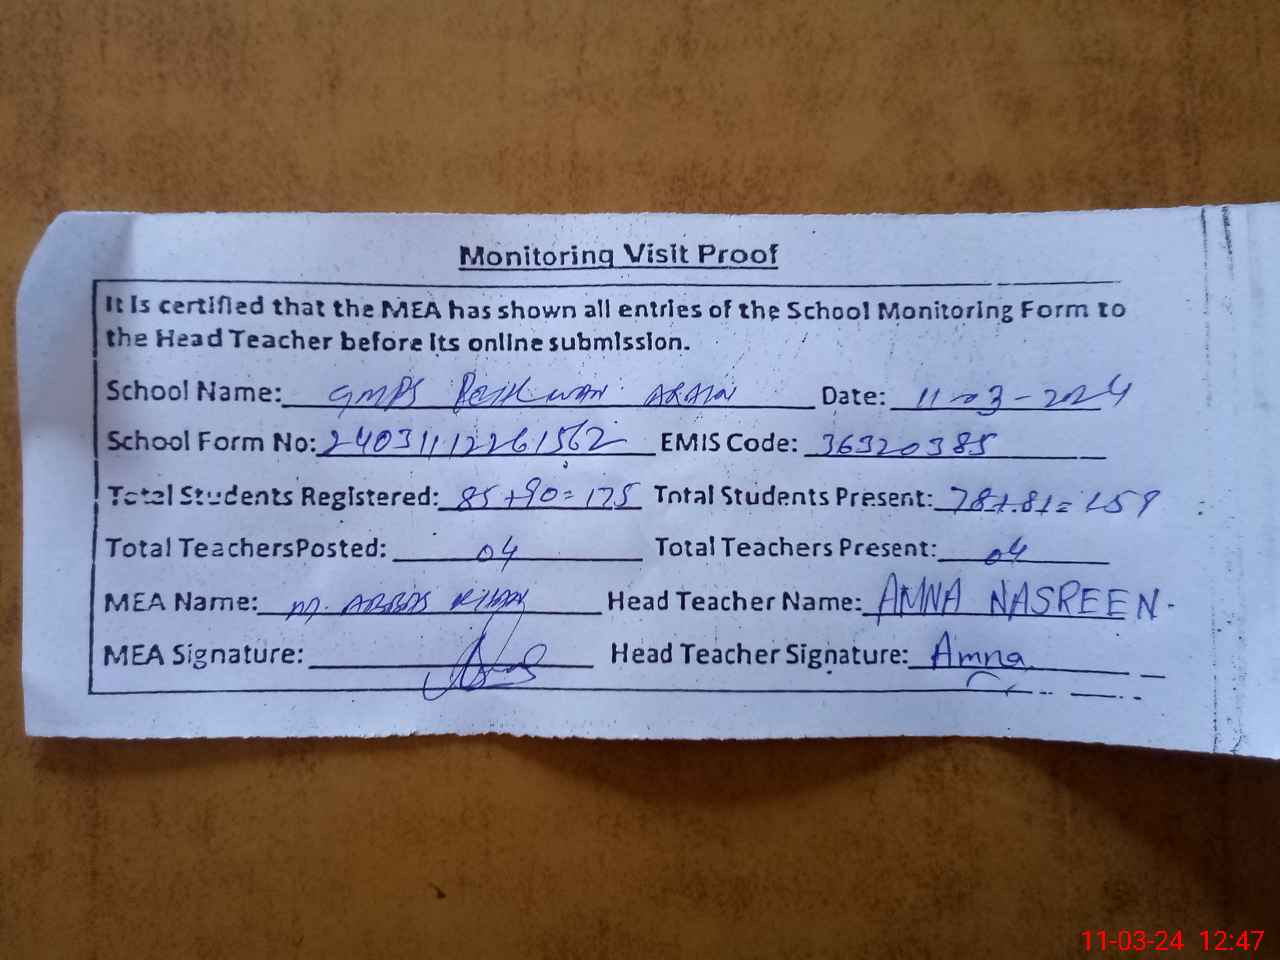 Monitoring Visit Proof
It is certified that the MEA has shown all entries of the School Monitoring Form to
the Head Teacher before its online submission.
School Name: GMPS ARAIN Date: 11-03-2024
School Form No: 24031112261562 EMIS Code: 36320385
Total Students Registered: 85+90=175 Total Students Present: 78+81=159
Total TeachersPosted: 04 Total Teachers Present: 04
MEA Name: M. ABBAS KHAN Head Teacher Name: AMNA NASREEN.
MEA Signature: Head Teacher Signature: Amna
11-03-24 12:47